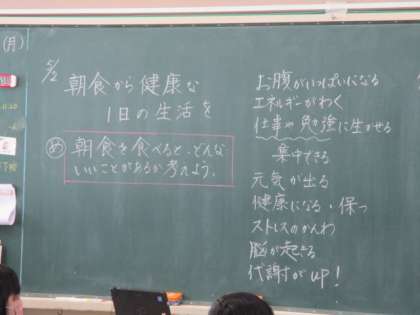 (月)
5/2
朝食から健康な
1日の生活を
め 朝食を食べると、どんな
いいことがあるか考えよう。
お腹がいっぱいになる
エネルギーがわく
仕事や勉強に生かせる
集中できる
元気が出る
健康になる・保つ
ストレスのかんわ
脳が起きる
代謝がup!